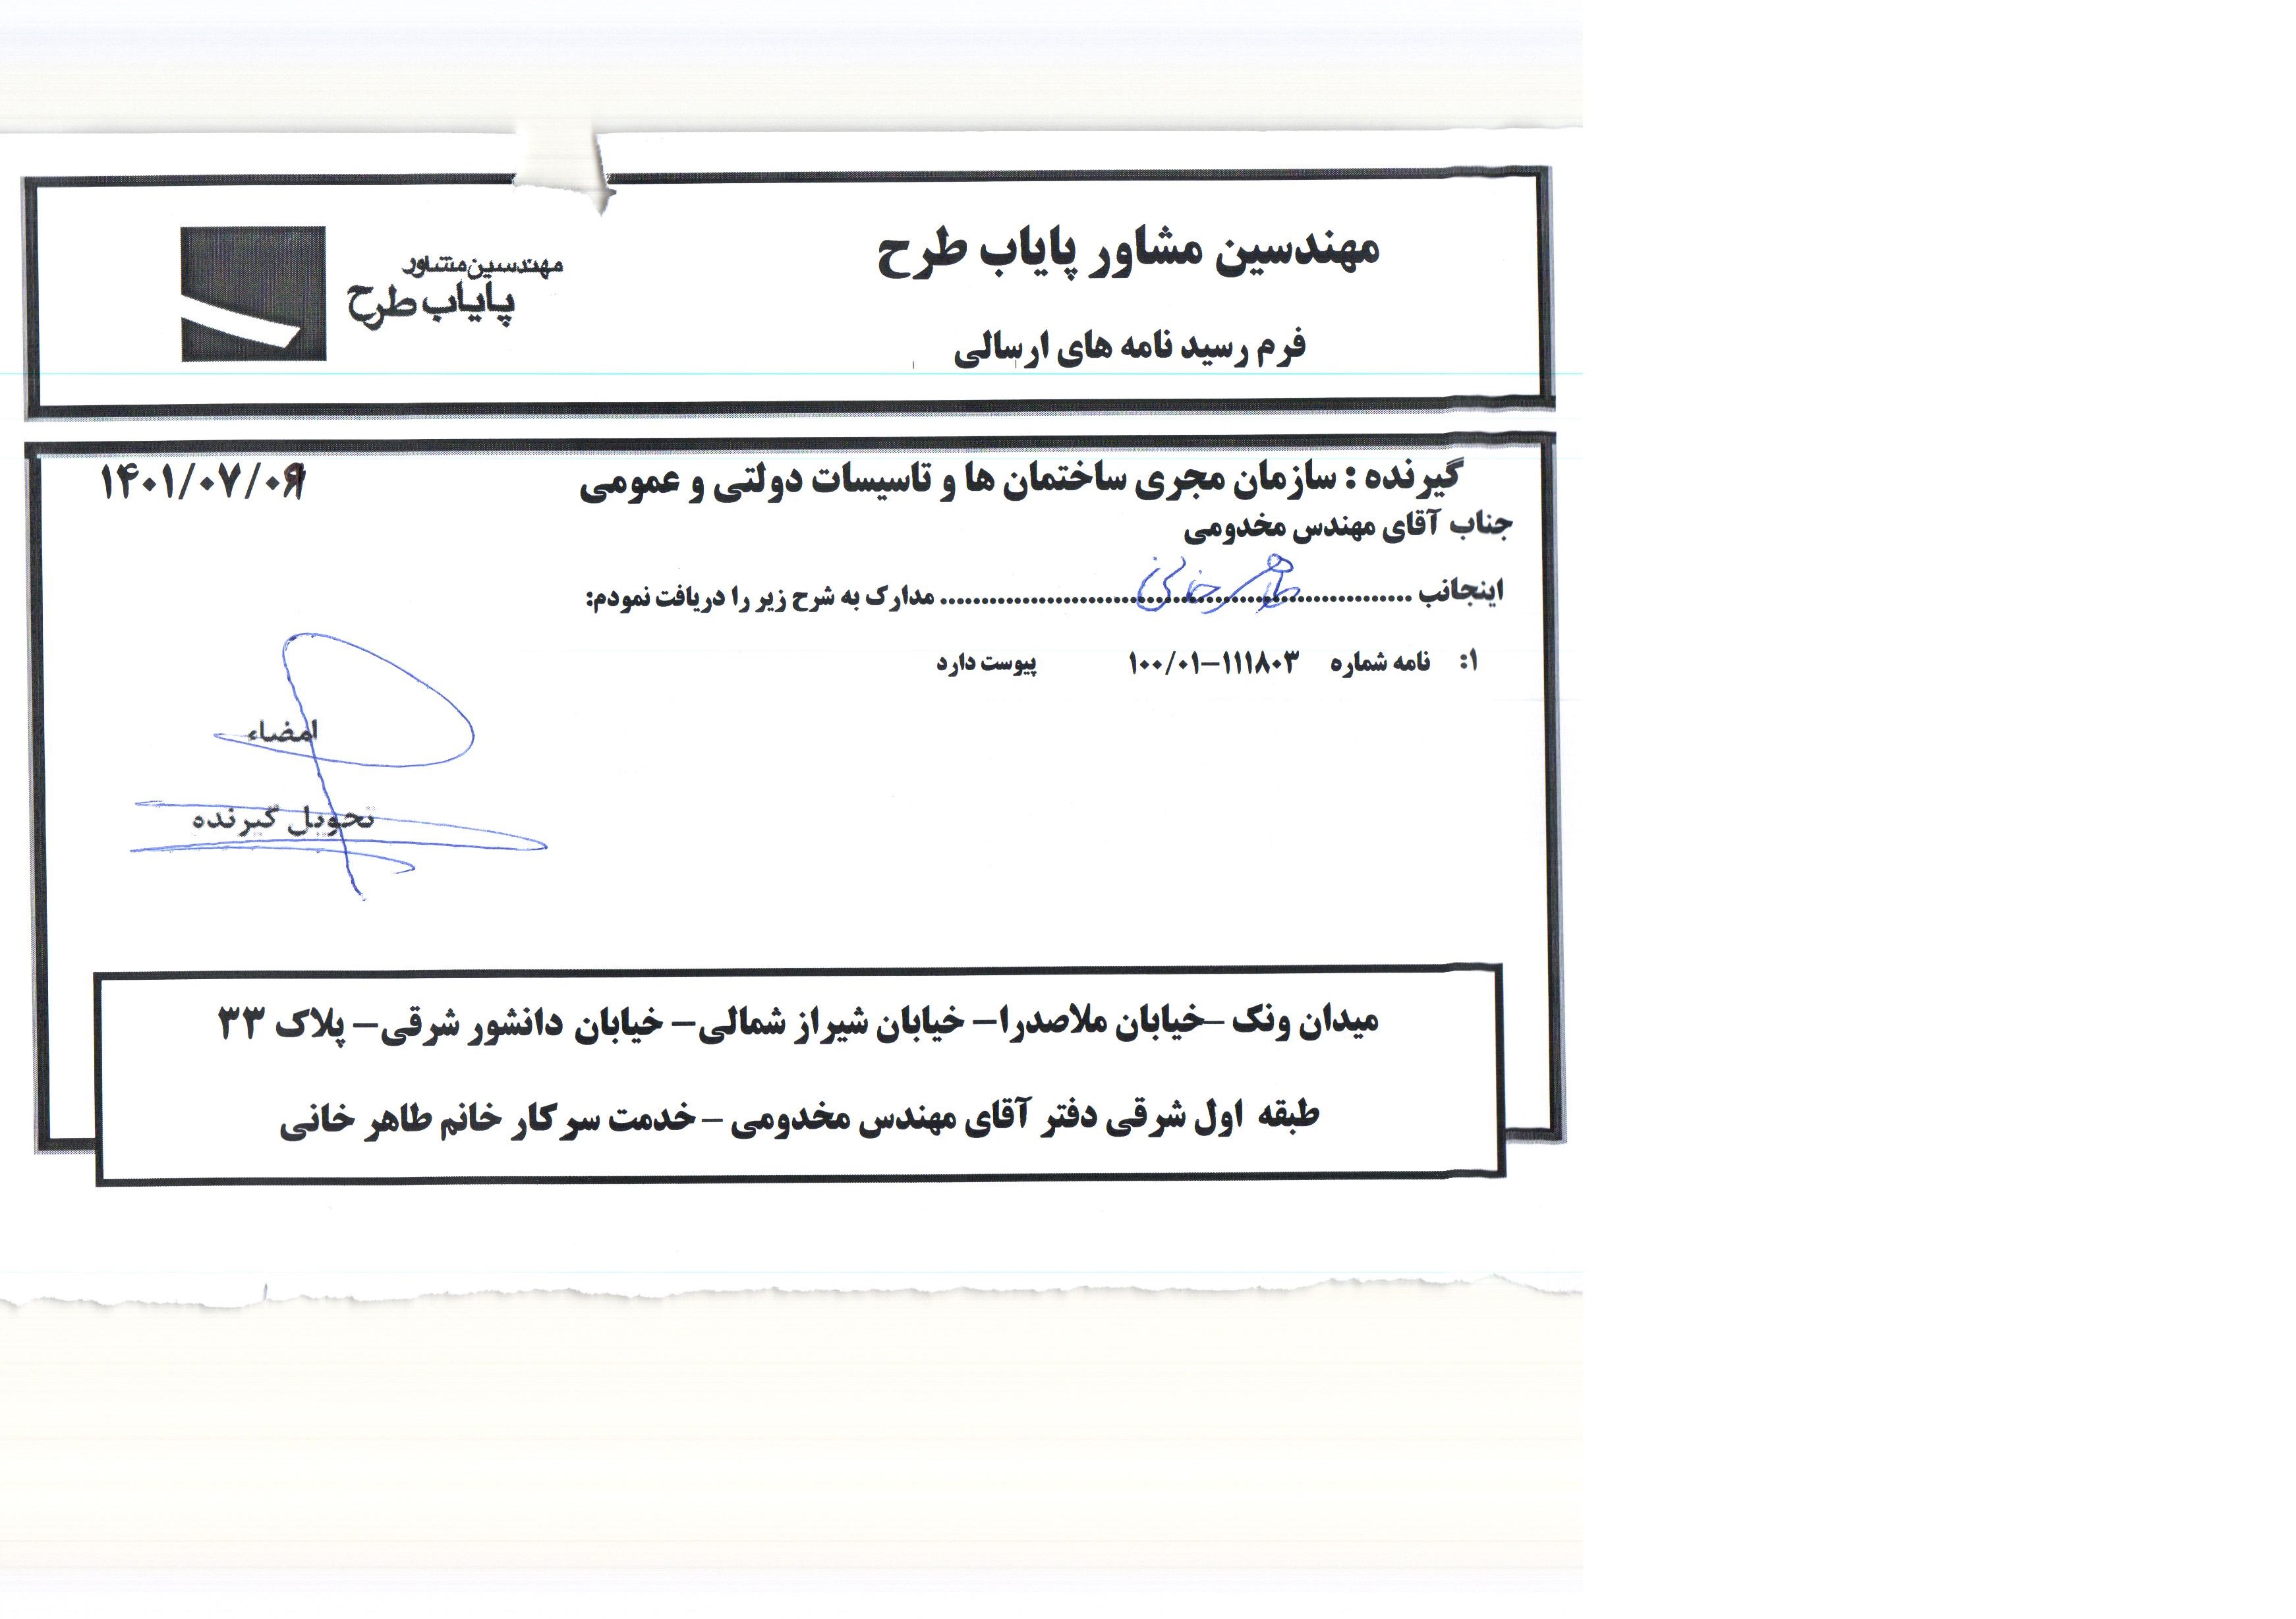 مهندسین مشاور پایاب طرح
مهندسین مشاور
پایاب طرح
فرم رسید نامه های ارسالی
گیرنده : سازمان مجری ساختمان ها و تاسیسات دولتی و عمومی
۱۴۰۱/۰۷/۰
جناب آقای مهندس مخدومی
اینجانب ........ طاهرخانی ........ مدارک به شرح زیر را دریافت نمودم:
۱: نامه شماره ۱۱۱۸۰۳-۱۰۰/۰۱ پیوست دارد
امضاء
تحویل گیرنده
میدان ونک –خیابان ملاصدرا– خیابان شیراز شمالی– خیابان دانشور شرقی– پلاک ۳۳
طبقه اول شرقی دفتر آقای مهندس مخدومی – خدمت سرکار خانم طاهر خانی